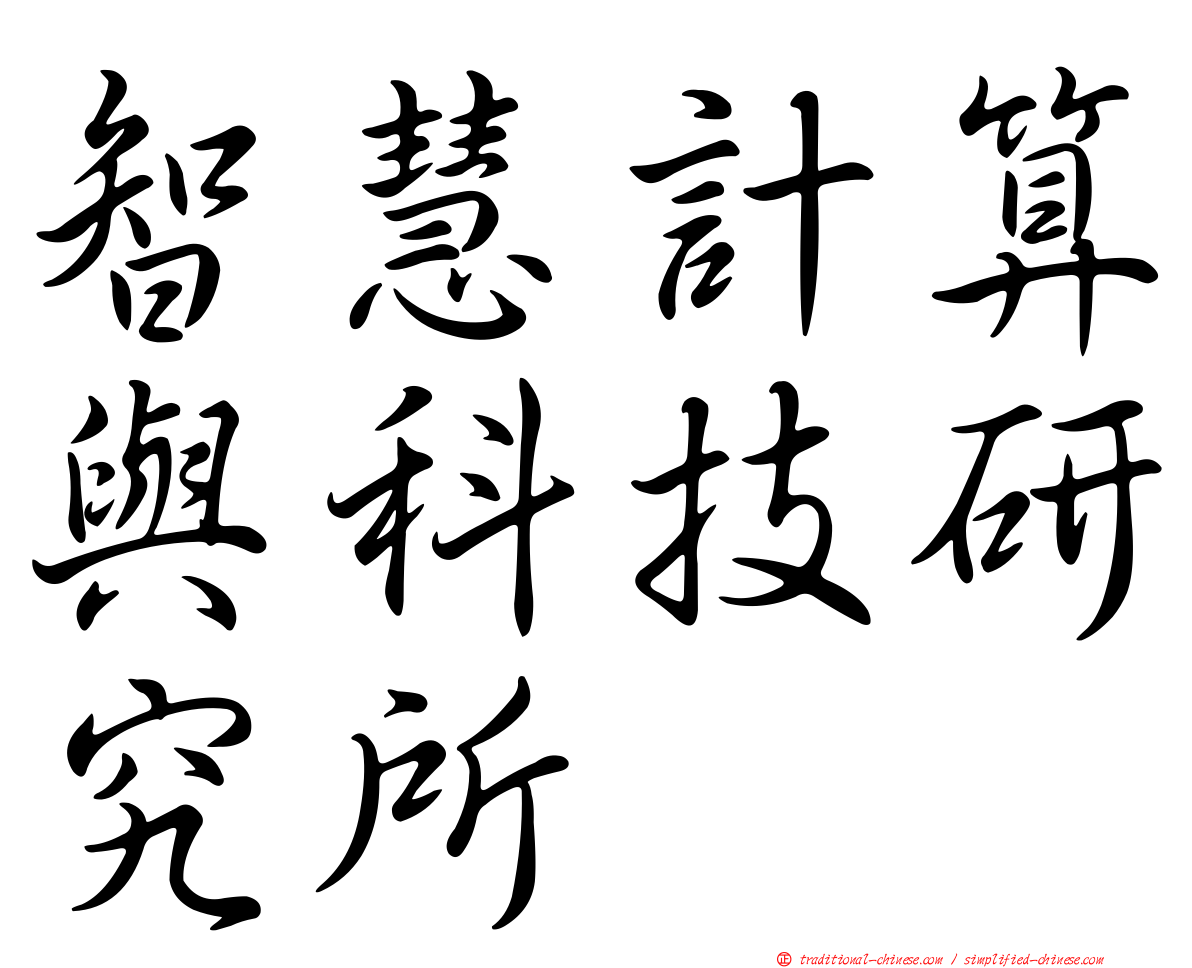 智慧計算
與科技研
究所
㊣ traditional-chinese.com / simplified-chinese.com